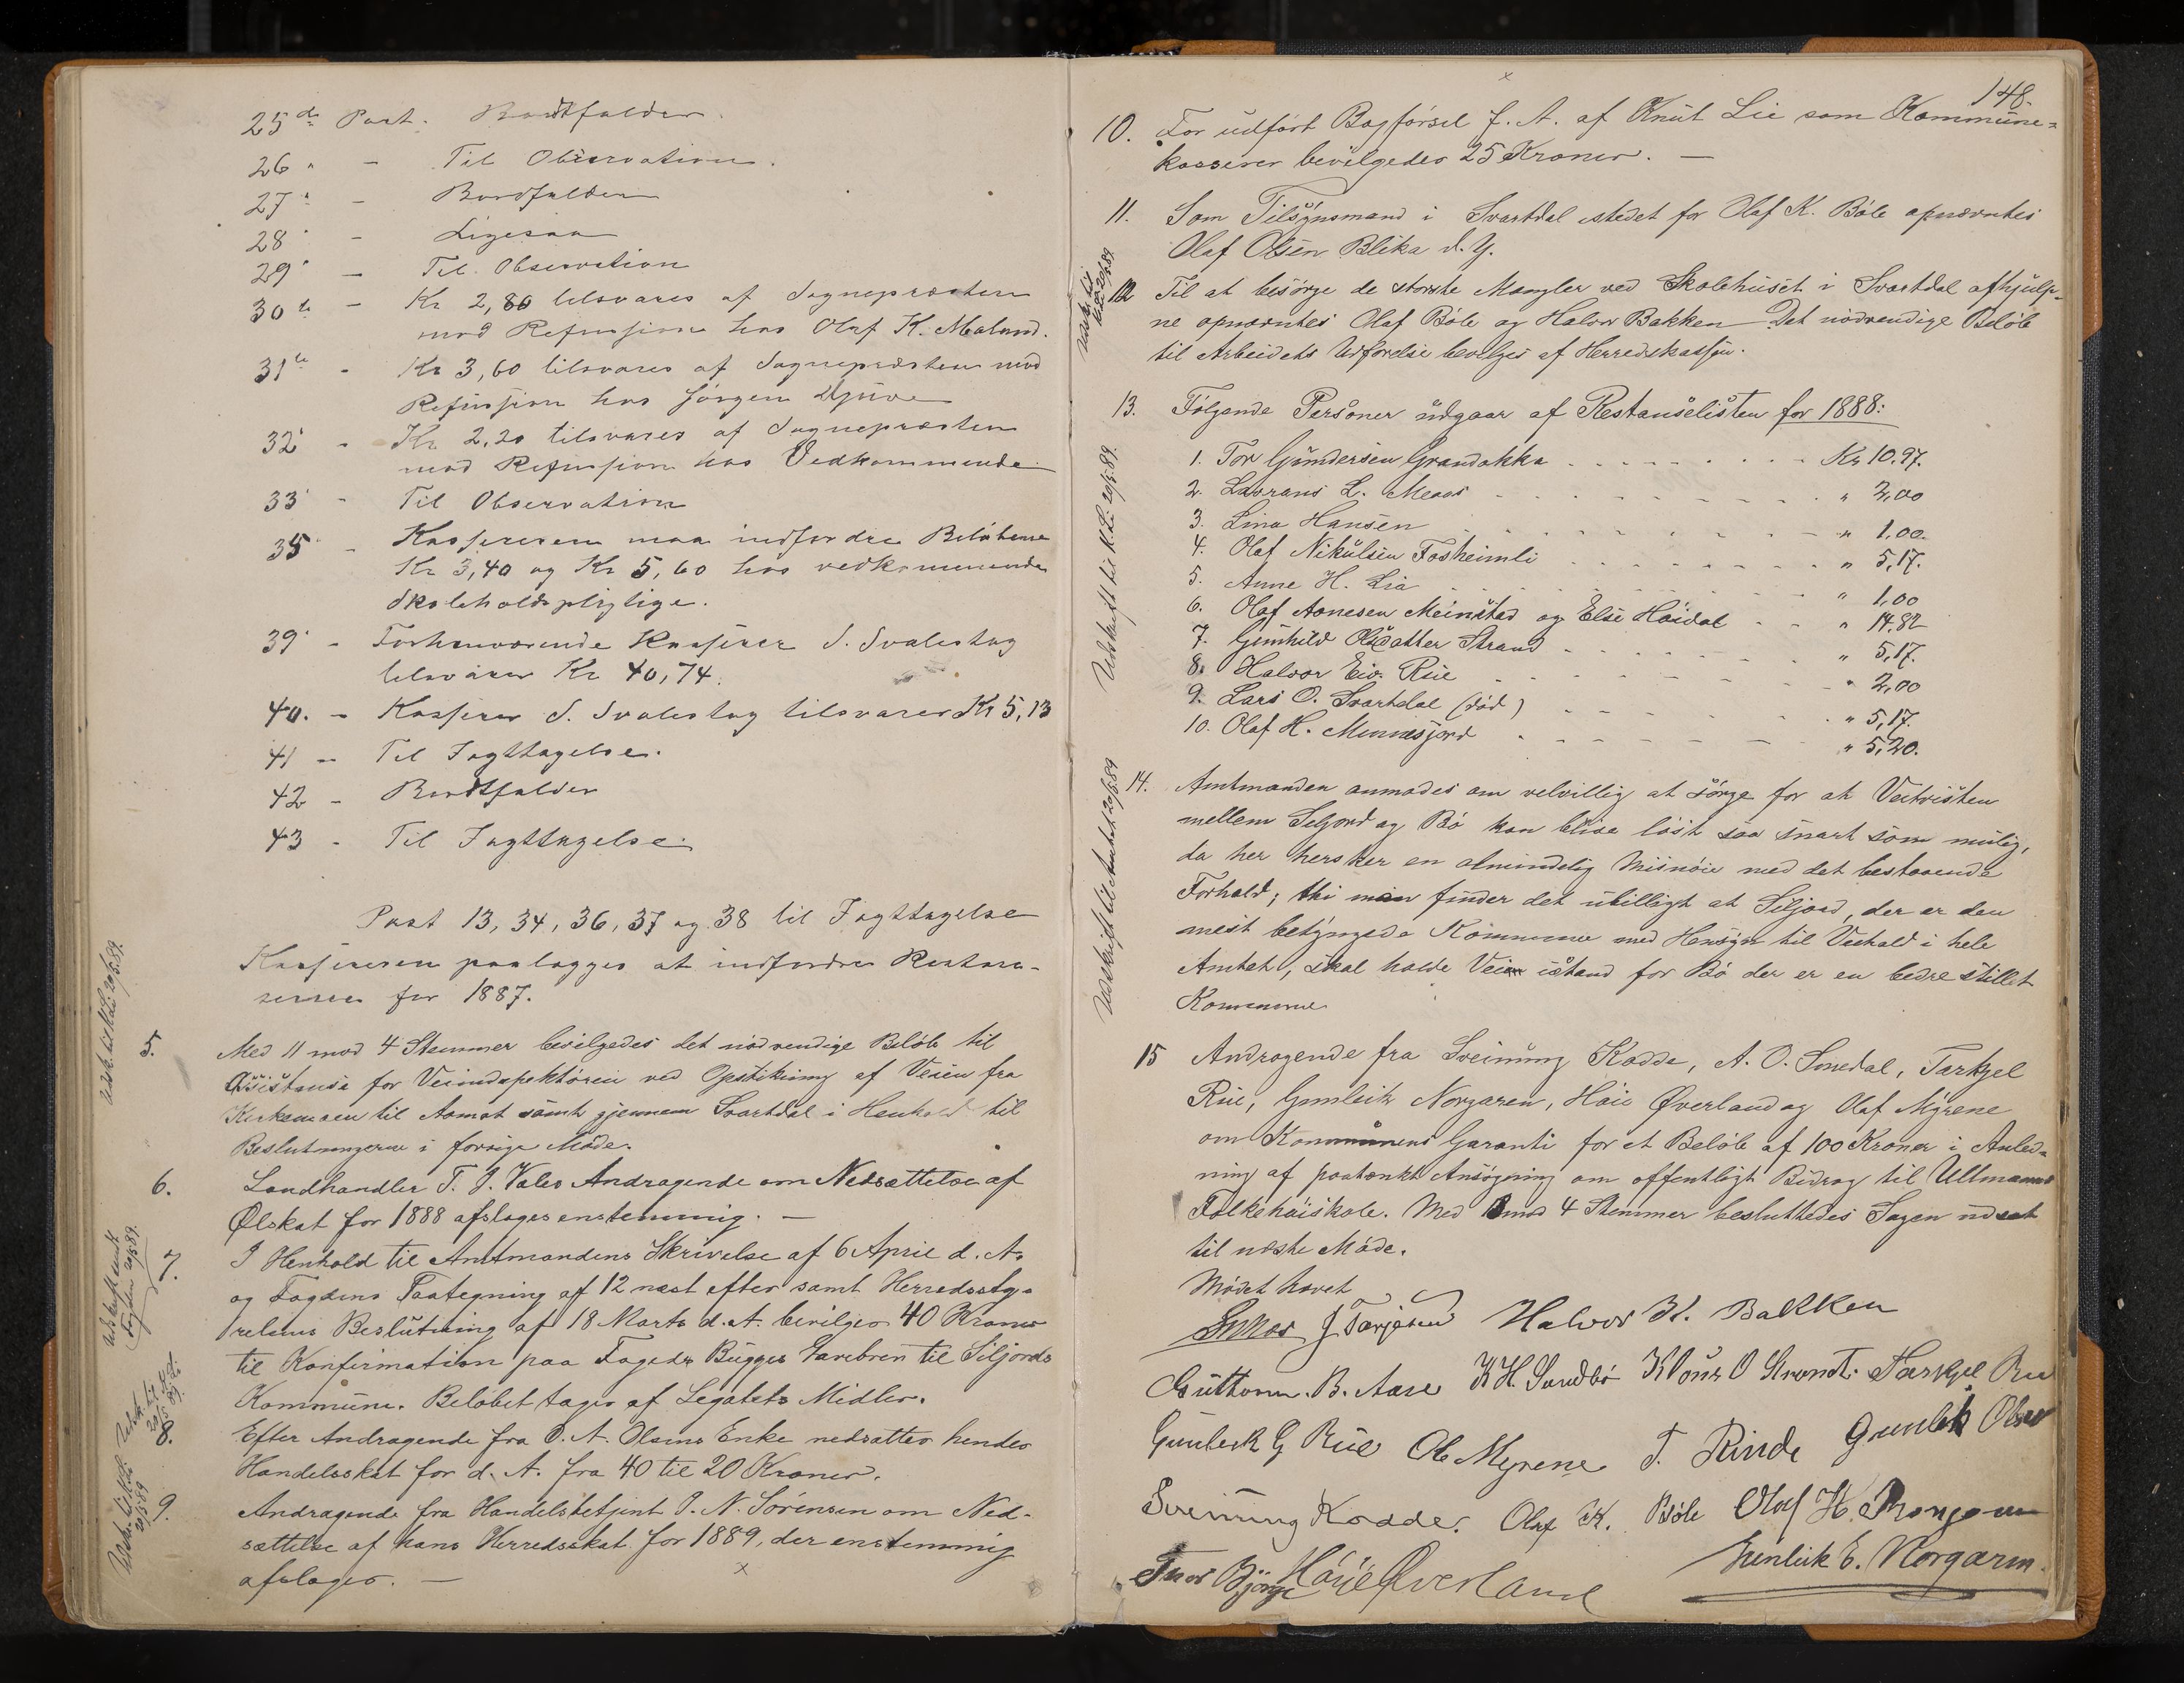 25de Post. Bortfalder.
26 " - Til Observation.
27 " - Bortfalder
28 " - Ligesaa
29 " - Til Observation
30te - Kr 2,80 tilsvares af Sognepræsten
mod Refusjion hos Olaf K. Maland.
31te - Kr 3,60 tilsvares af Sognepræsten mod
Refusjion hos Jørgen Djuve
32 - Kr 2,20 tilsvares af Sognepræsten
mod Refusjion hos Vedkommende
33 - Til Observation
35 - Kassereren maa indfordre Beløbene
Kr 3,40 og Kr 5,60 hos vedkommende
Skoleholdspligtige.
39 - Forhenværende Kasserer S. Svalestog
tilsvarer Kr 40,74.
40. - Kasserer S. Svalestog tilsvarer Kr 5,13
41 - Til Iagttagelse.
42 - Bortfalder
43 - Til Iagttagelse.
Post 13, 34, 36, 37 og 38 til Iagttagelse
Kassereren paalægges at indfordre Restan-
serne for 1887.
Udsk. til K.Li 20/5 89.
5. Med 11 mod 4 Stemmer bevilgedes det nødvendige Beløb til
Assistanse for Veiindspektøren ved Opstikning af Veien fra
Kirkemoen til Aamot samt gjennem Svartdal i Henhold til
Beslutningerne i forrige Møde.
6. Landhandler T. J. Vales Andragende om Nedsættelse af
Ølskat for 1888 afslages enstemmig. -
Udskrift sendt
Fogden 20/5 89.
7. I Henhold til Amtmandens Skrivelse af 6 April d. A.
og Fogdens Paategning af 12 næst efter samt Herredssty-
relsens Beslutning af 18 Marts d. A. bevilges 40 Kroner
til Konfirmation paa Fogeds Bugges Gavebrev til Siljords
Kommune. Beløbet tages af Legatets Midler.
8. Efter Andragende fra O. A. Olsens Enke nedsættes hendes
Handelsskat for d. A. fra 40 til 20 Kroner.
9. Andragende fra Handelsbetjent J. N. Sørensen om Ned-
sættelse af hans Herredsskat for 1889, der enstemmig
afslages. -
x
x
148.
10. For udført Bogførsel f. A. af Knut Lie som Kommune-
kasserer bevilgedes 25 Kroner. -
11. Som Tilsynsmand i Svartdal istedet for Olaf K. Bøle opnævntes
Olaf Olsen Blika d. Y.
12 Til at besørge de største Mangler ved Skolehuset i Svartdal afhjulp-
ne opnævntes Olaf Bøle og Halvor Bakken Det nødvendige Beløb
til Arbeidets Udførelse bevilges af Herredskassen.
Udskrift til K.Li 20/5 89.
13. Følgende Personer udgaar af Restanselisten for 1888:
1. Tor Gundersen Grandokka Kr 10.97.
2. Lavrans L. Meaas " 2,00
3. Lina Hansen " 1,00.
4. Olaf Nikulsen Fosheimli " 5,17.
5. Anne H. Lia " 1,00
6. Olaf Aanesen Meinstad og Else Høidal " 14,82
7. Gunhild Olsdatter Strand " 5,17.
8. Halvor Eiv. Rue " 2,00
9. Lars O. Svartdal (død) " 5,17.
10. Olaf H. Minnesjord " 5,20.
Udskrift til Amtet 20/5 89
14. Amtmanden anmodes om velvillig at sørge for at Veitvisten
mellem Seljord og Bø kan blive løst saa snart som mulig,
da her hersker en almindelig Misnøie med det bestaaende
Forhold; thi man finder det ubilligt at Siljord, der er den
mest betyngede Kommune med Hensyn til Veihold i hele
Amtet, skal holde Vei istand for Bø der er en bedre stillet
Kommune
15 Andragende fra Sveinung Kodde, A. O. Sinedal, Tarkjel
Rue, Gunleik Norgaren, Høie Øverland og Olaf Myrene
om Kommunens Garanti for et Beløb af 100 Kroner i Anled-
ning af paatænkt Ansøgning om offentligt Bidrag til Ullmanns
Folkehøiskole. Med mod 4 Stemmer besluttedes Sagen udsat
til næste Møde.
Mødet hævet
J Tarjesen Halvor K. Bakken
Guttorm. B. Aase K H. Sundbø O Strand. Tarkjel Rue
Gunleik G Rue Ol. Myrene T. Rinde Gunleik Olsen
Sveinung Kodde. Olaf K. Bøle Olaf H.
Bjørge Høie Øverland Gunleik E. Norgaren